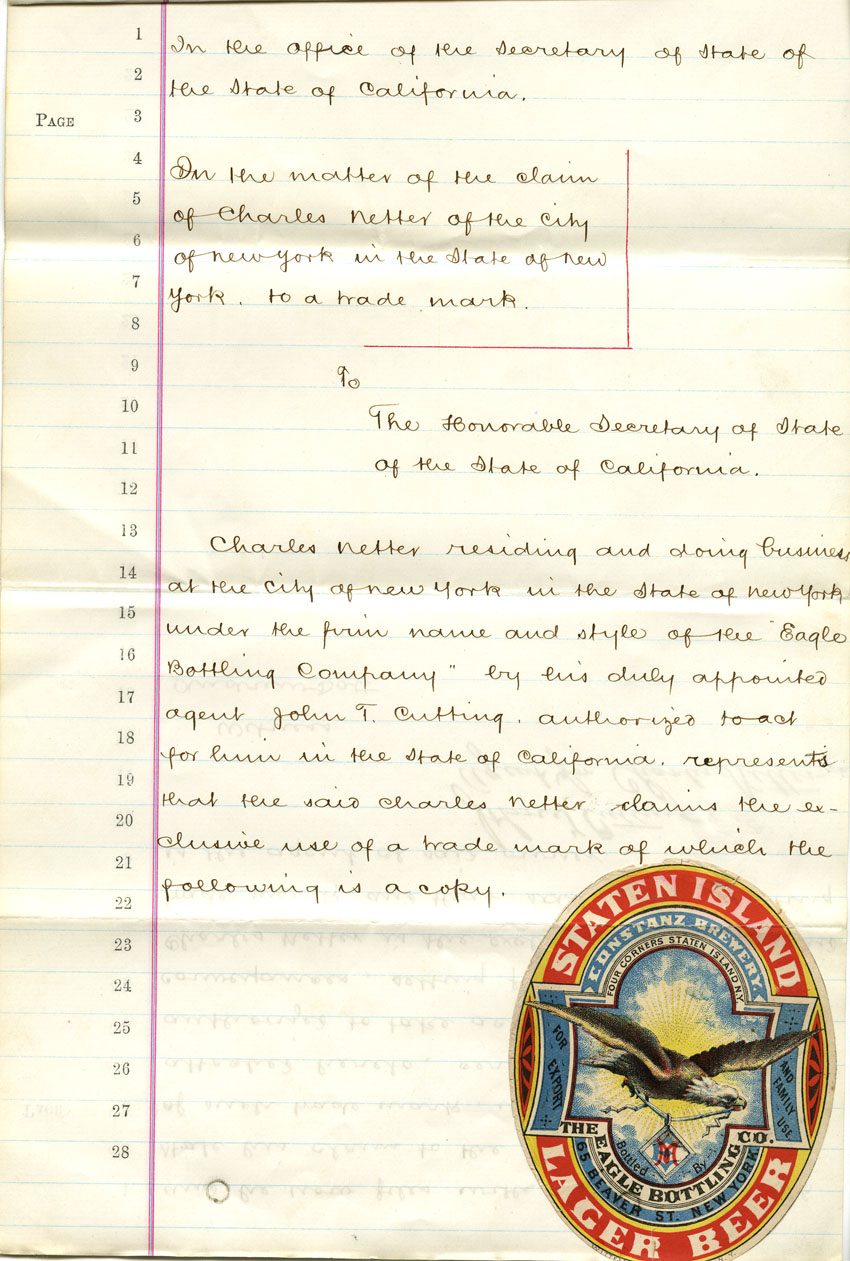 1
In the office of the Secretary of State of
2
the State of California.
PAGE 3
4
In the matter of the claim
5
of Charles Netter of the City
6
of New York in the State of New
7
York. to a trade mark.
8
9
To
10
The Honorable Secretary of State
11
of the State of California.
12
13
Charles Netter residing and doing business
14
at the City of New York in the State of New York
15
under the firm name and style of the "Eagle
16
Bottling Company" by his duly appointed
17
agent John T. Cutting. authorized to act
18
for him in the State of California. represents
19
that the said Charles Netter claims the ex-
20
clusive use of a trade mark of which the
21
following is a copy.
22
23
24
25
26
27
28
STATEN ISLAND
CONSTANZ BREWERY.
FOUR CORNERS STATEN ISLAND N.Y.
FOR EXPORT
AND FAMILY USE
Bottled By
THE EAGLE BOTTLING CO.
65 BEAVER ST. NEW YORK
LAGER BEER